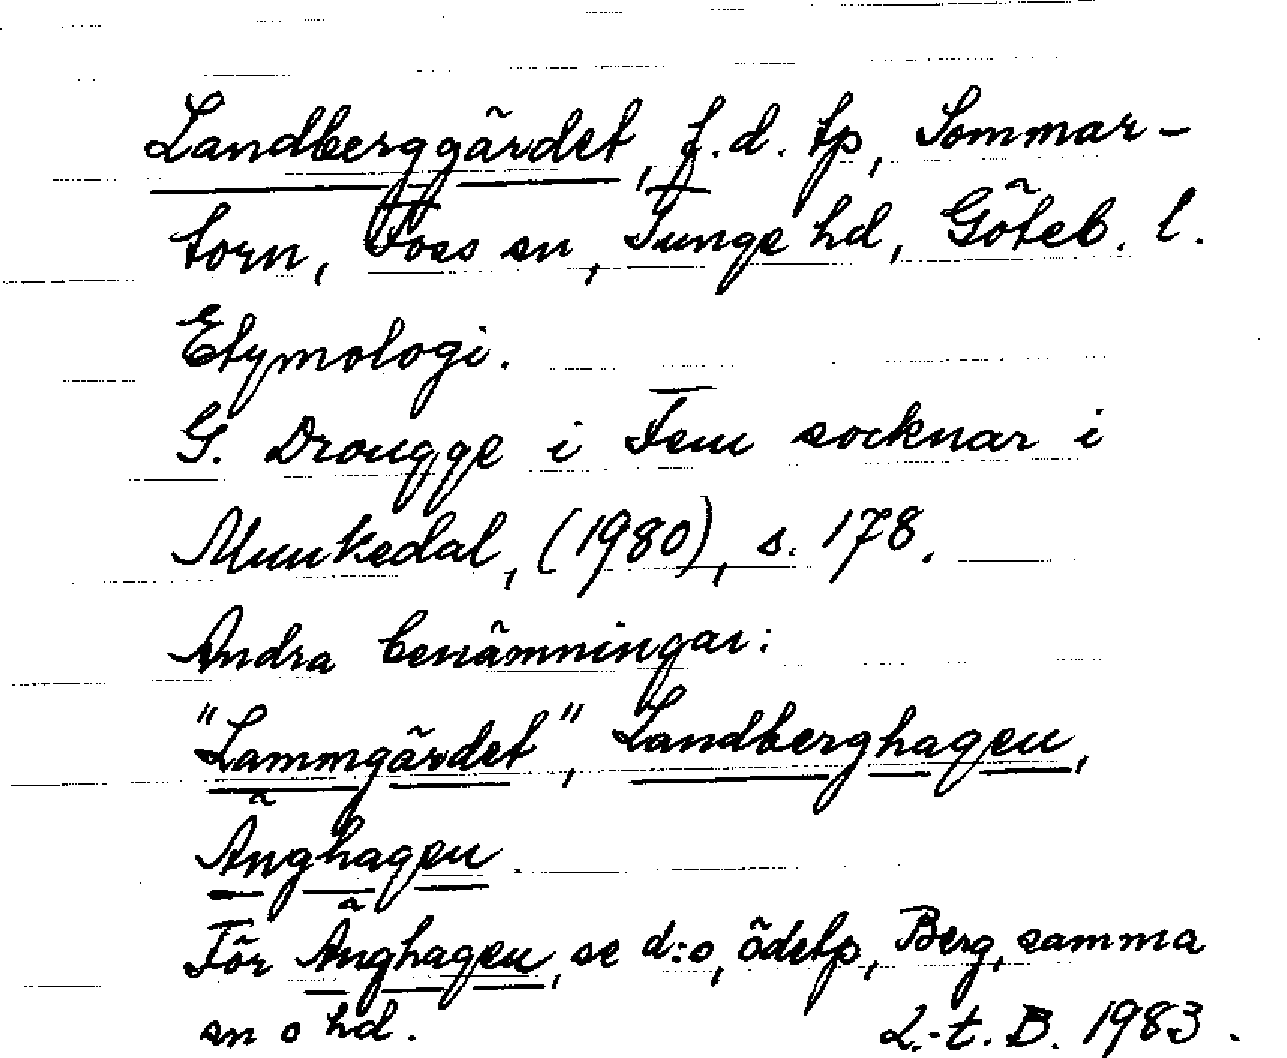 Landberggärdet, f.d. tp, Sommar-
torn, Foss sn, Tunge hd, Göteb. l.
Etymologi.
G. Drougge i Fem socknar i
Munkedal, (1980), s. 178.
Andra benämningar:
"Lammgärdet", Landberghagen,
Änghagen
För Änghagen, se d:o, ödetp, Berg, samma
sn o hd. L.-t. B. 1983.